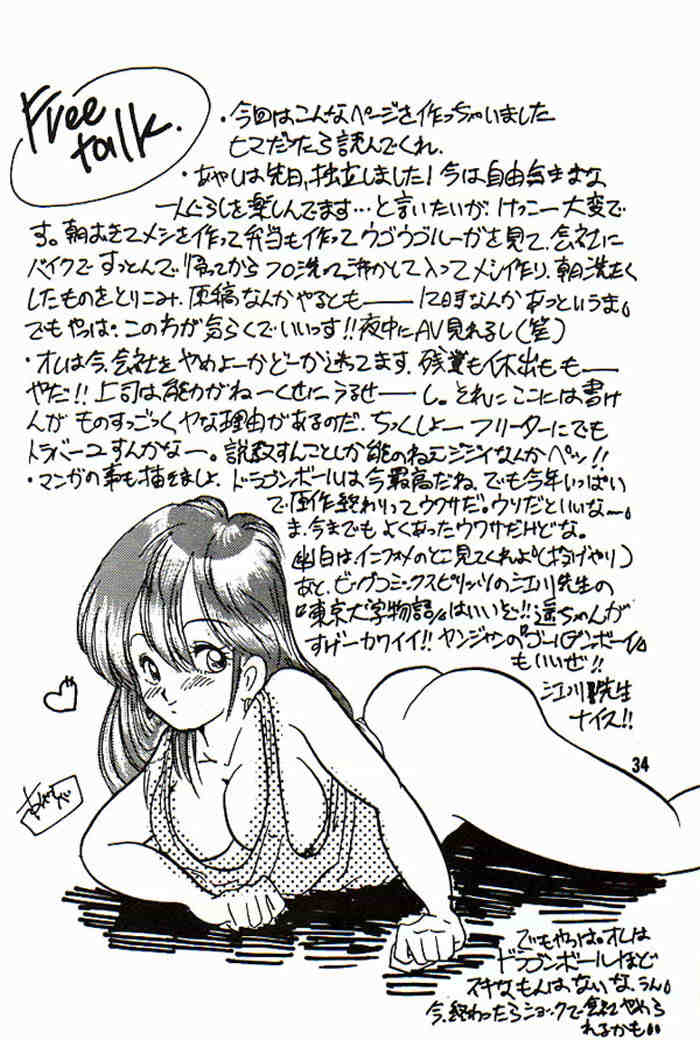 Free
talk.
・今回はこんなページを作っちゃいました
ヒマだったら読んでくれ.
・あやしは先日、独立しました！今は自由気ままな
一人ぐらしを楽しんでます…と言いたいが、けっこー大変で
す。朝おきてメシを作って弁当も作ってウゴウゴルーガを見て、会社に
バイクですっとんで帰ってからフロ洗って沸かして入ってメシ作り、朝洗たく
したものをとりこみ、原稿なんかやるともー 12時なんかあっというま。
でもやっぱ。このわが気らくでいいっす!!夜中にAV見れるし(笑)
・オレは今、会社をやめよーかどーか迷ってます、残業も休出もも――
やだ!!上司は能力がねーくせにうるせ――し。それにここには書け
んが ものすっごっくヤな理由があるのだ、ちっくしょー フリーターにでも
トラバーユすんかなー。説教すんことしか能のねェジジイなんかペッ!!
・マンガの事も描きましょ、ドラゴンボールは今最高だね、でも今年いっぱい
で原作終わりってウワサだ。ウソだといいな〜。
ま、今までもよくあったウワサだけどな。
幽白はインフォメのとこ見てくれよ(投げやり)
あと、ビッグコミックスピリッツの江川先生の
『東京大学物語』はいいぞ!!遥ちゃんが
すげーカワイイ!!ヤンジャンの『ゴールデンボーイ』
もいいぜ!!
江川先生
ナイス!!
34
でもやっぱ。オレは
ドラゴンボールほど
スキなもんはないな、うん。
今、終わったらショックで会社やめら
れるかも。。